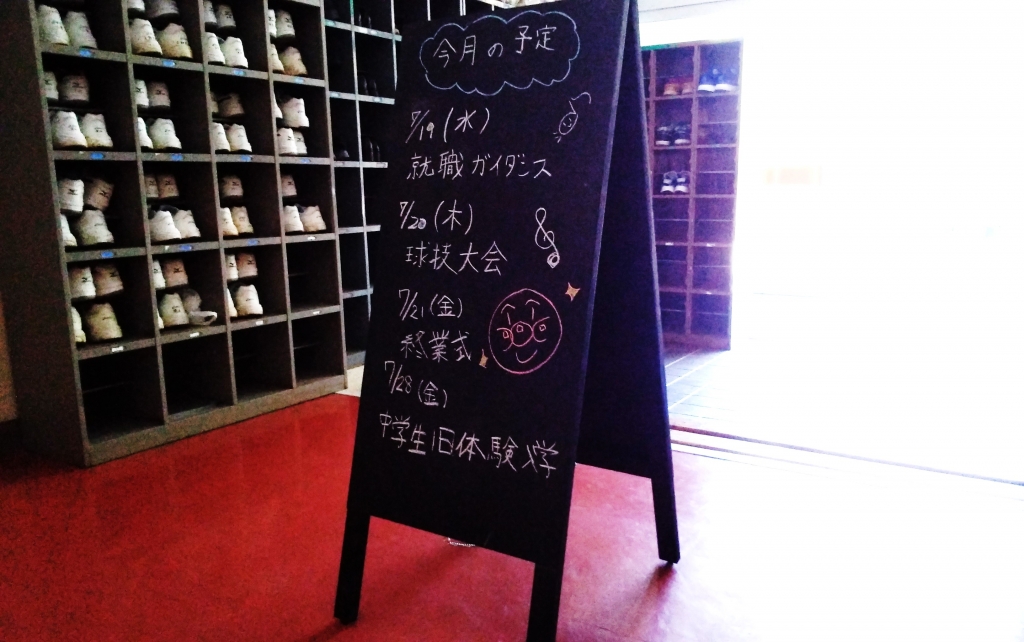 今月の予定
7/19(水)
就職ガイダンス
7/20(木)
球技大会
7/21(金)
終業式
7/28(金)
中学生1日体験入学